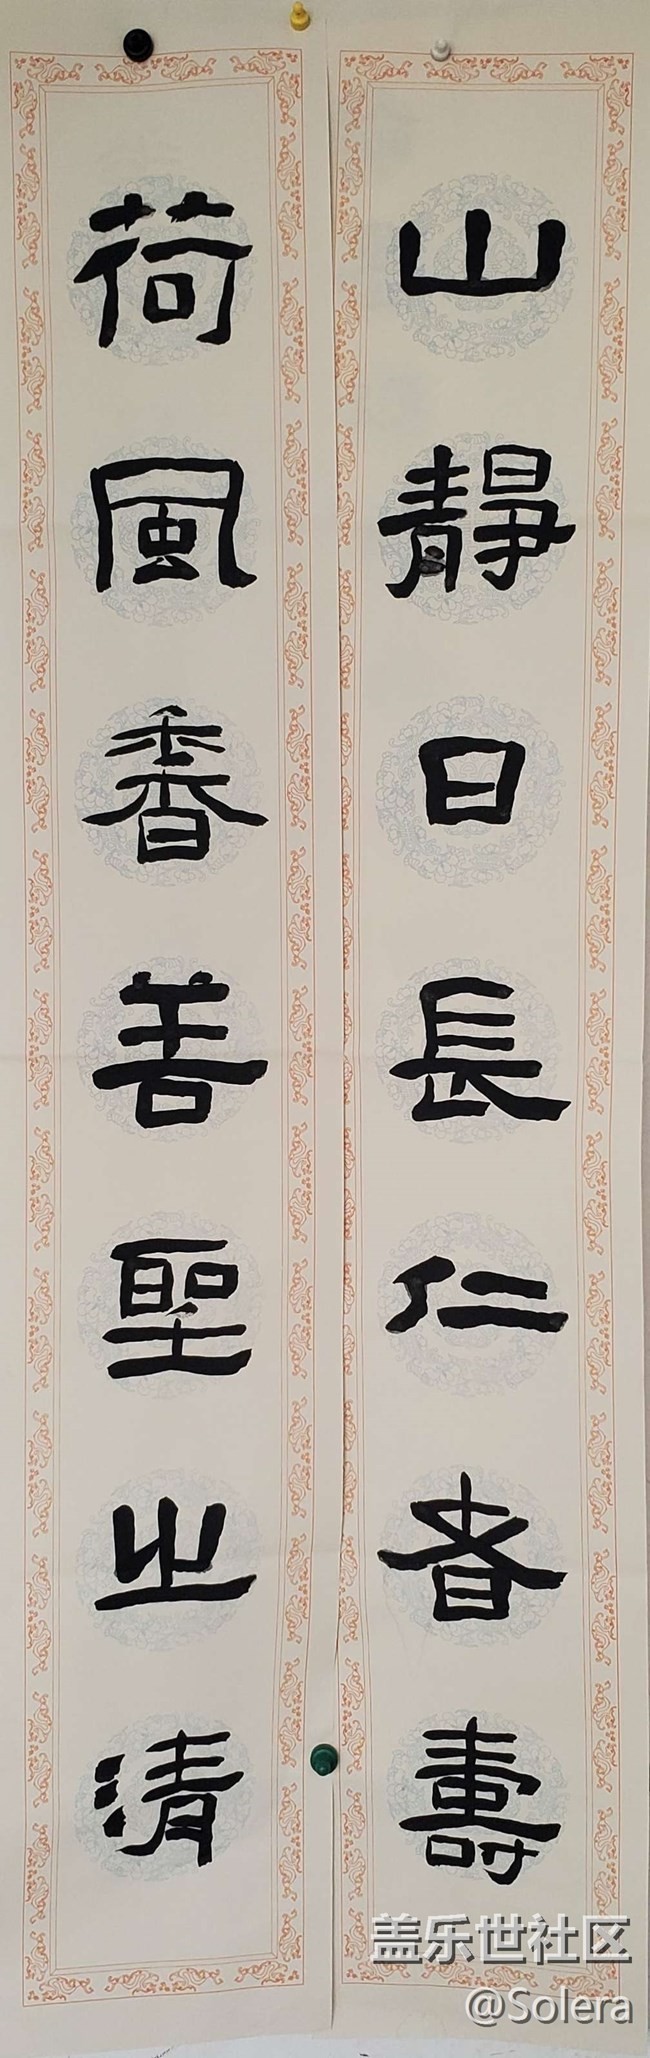 山靜日長仁者壽
荷風香善聖之清
盖乐世社区
@Solera